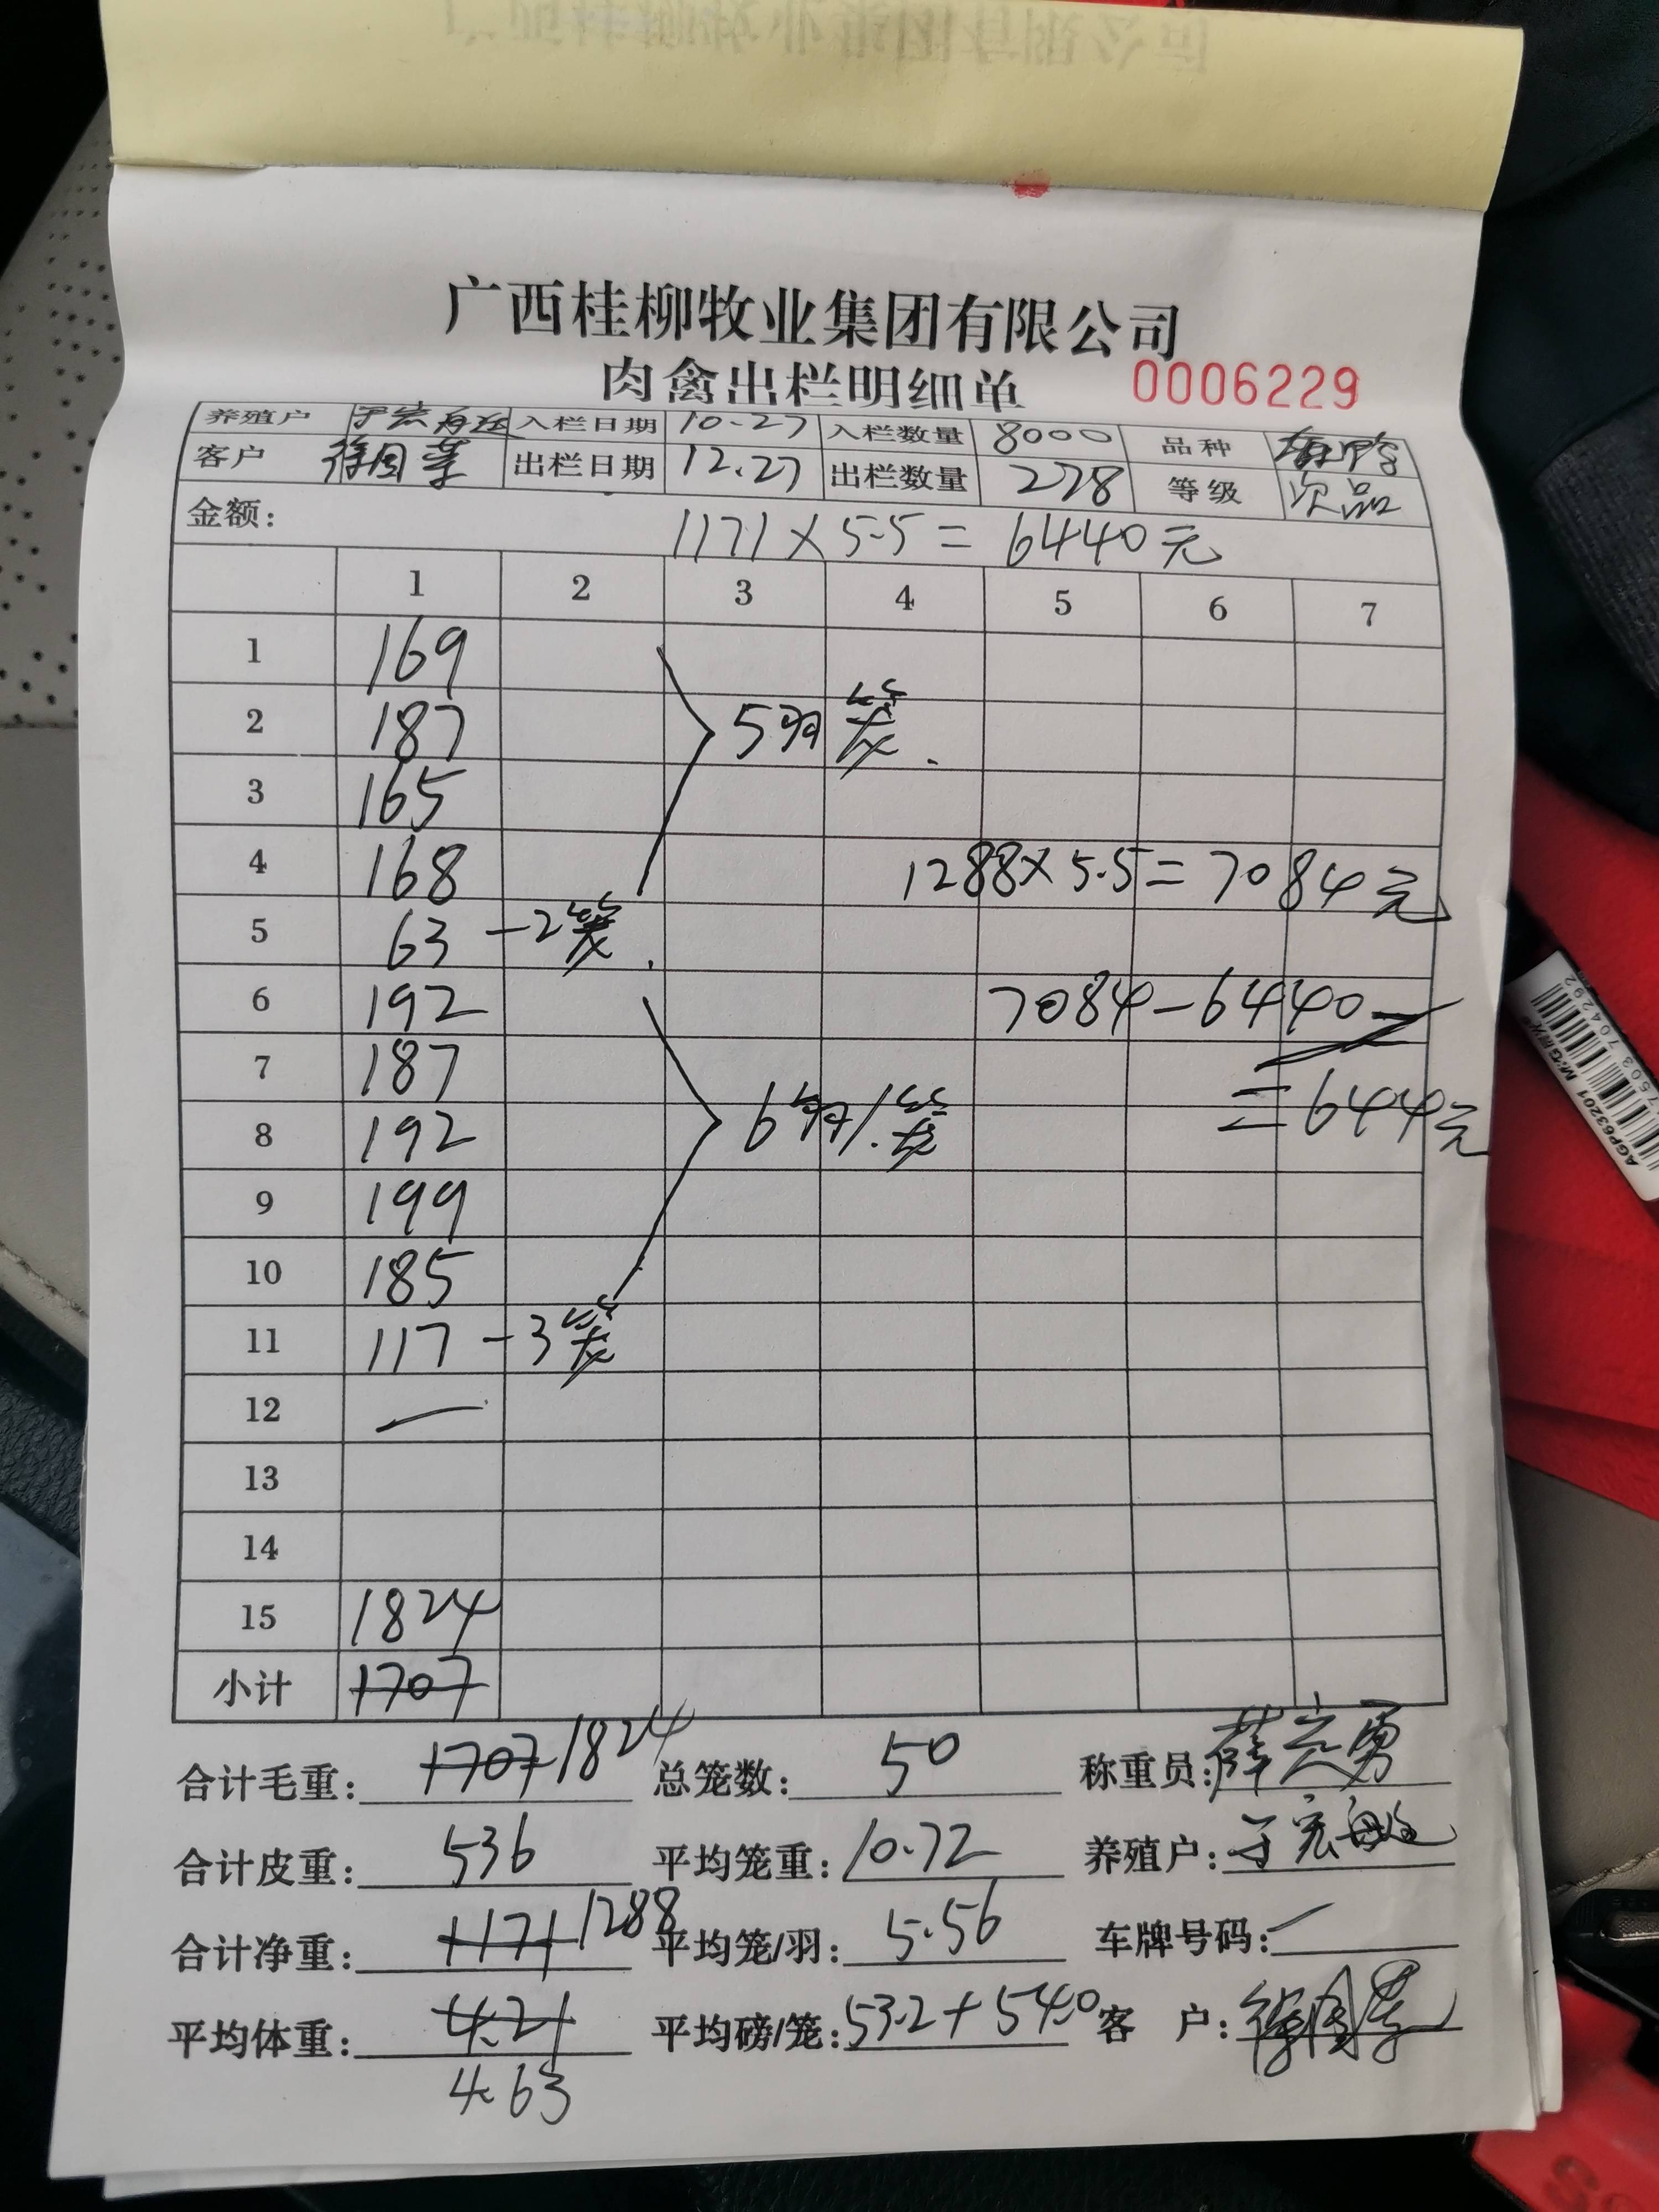 广西桂柳牧业集团有限公司
肉禽出栏明细单 0006229
养殖户 入栏日期 10.27 入栏数量 8000 品种
客户 出栏日期 12.27 出栏数量 278 等级 次品
金额: 1171×5.5=6440元
1 2 3 4 5 6 7
1 169
2 187 5羽 笼.
3 165
4 168 1288×5.5=7084元
5 63 -2笼.
6 192 7084-6440
7 187 =644元
8 192 6羽/笼
9 199
10 185
11 117 -3笼
12 —
13
14
15 1824
小计 1707
合计毛重: 1707 1824 总笼数: 50 称重员: 薛宏勇
合计皮重: 536 平均笼重: 10.72 养殖户:
合计净重: 1171 1288 平均笼/羽: 5.56 车牌号码: —
平均体重: 4.21 平均磅/笼: 53.2+54.0 客 户:
4.63
AGP63201
503 704292